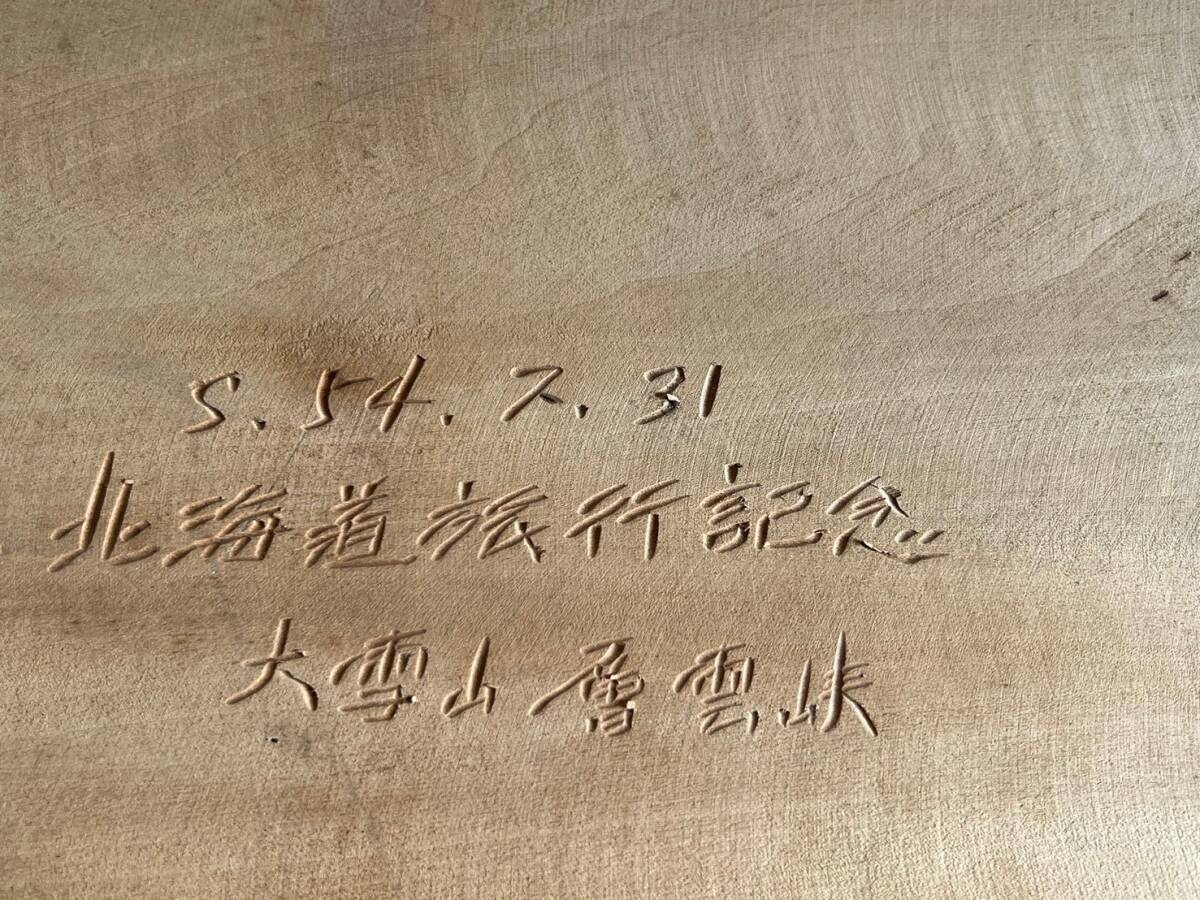 S.54.7.31
北海道旅行記念
大雪山層雲峡